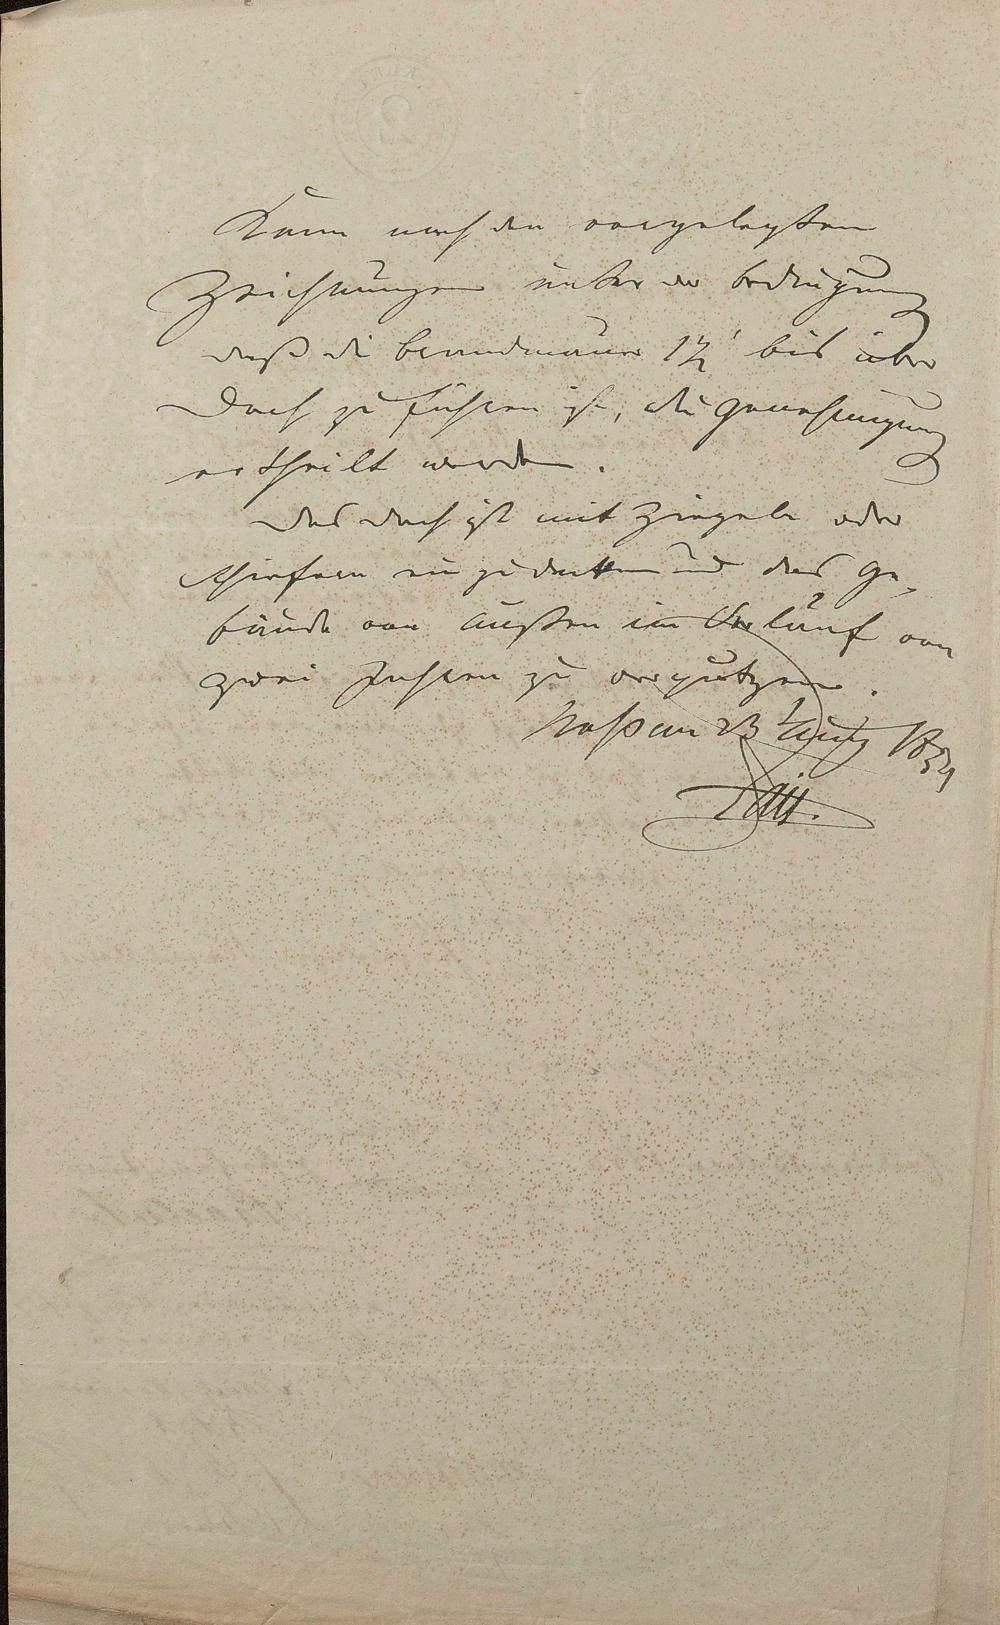 Kann nach den vorgelegten
Zeichnungen unter der bedingung
daß die brandmauer 1½' bis über
Dach zu führen ist, die genehmigung
ertheilt werden.
Das dach ist mit Ziegeln oder
schiefern einzudecken und das ge-
bäude von außen im Verlauf von
zwei Jahren zu verputzen.
Nassau 23